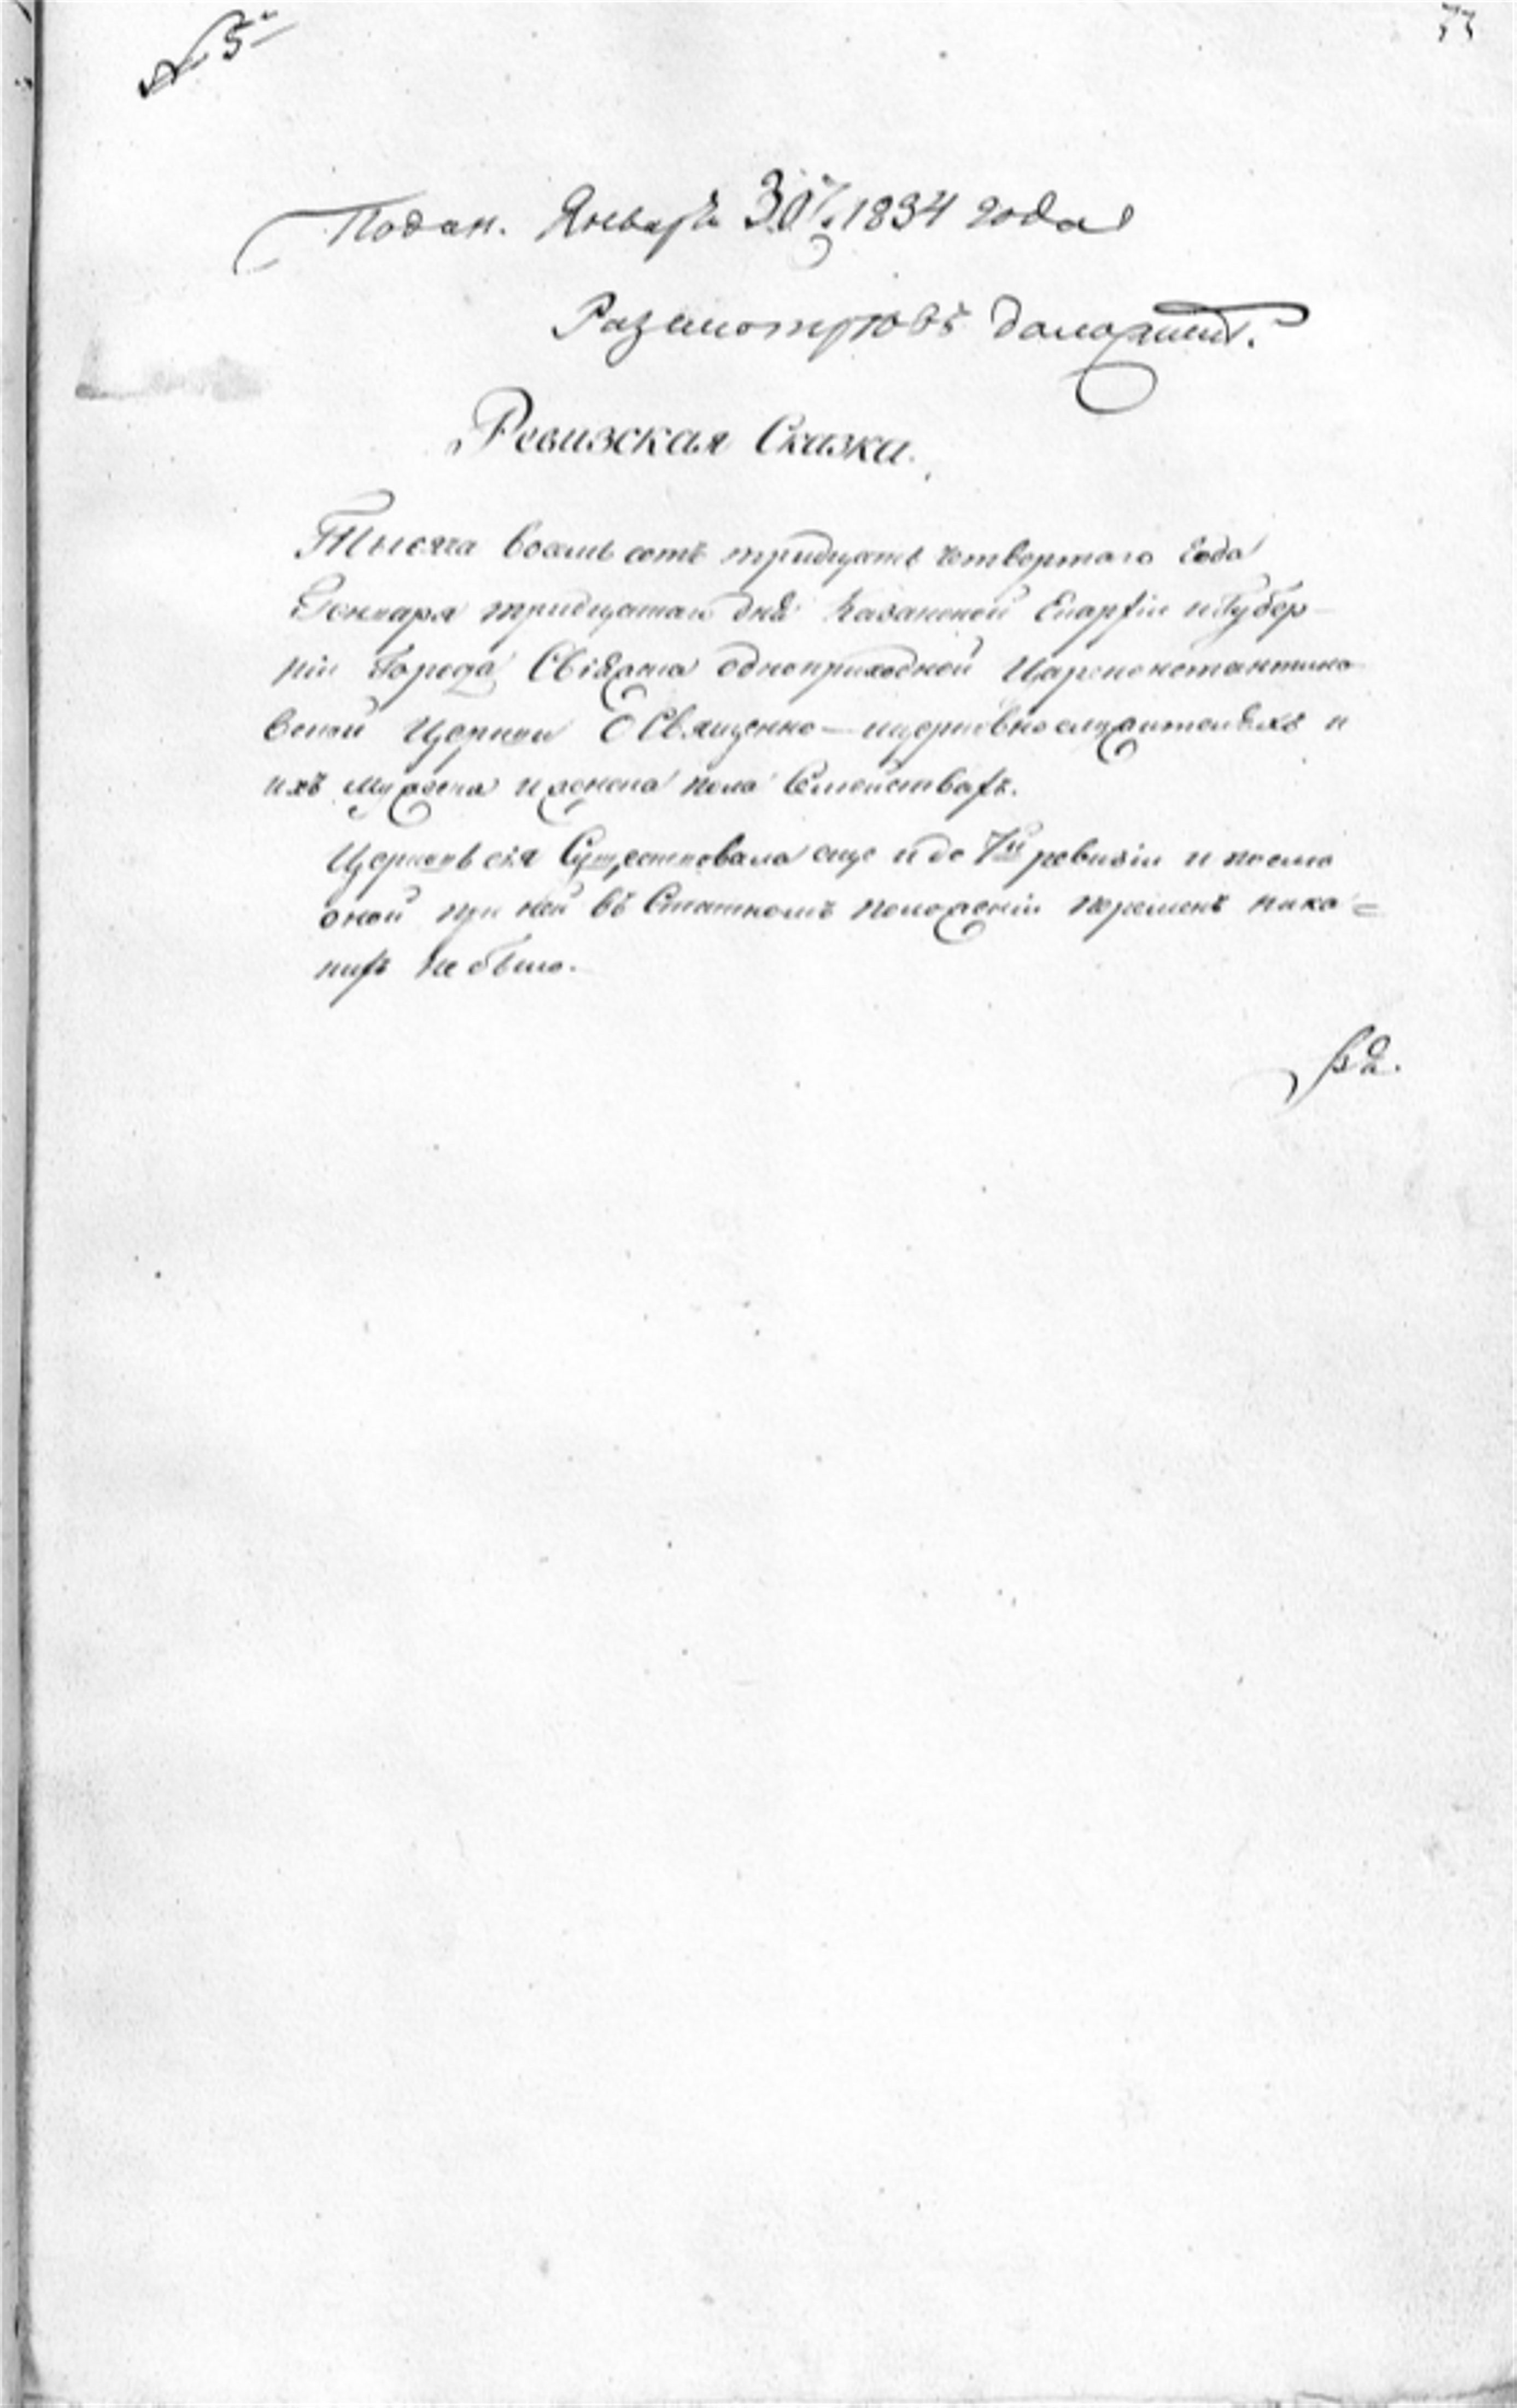 № 5
Подан. Января 30. 1834 года
Разсмотрювъ доложить.
Ревизская Сказка.
Тысяча восемь сотъ тридцать четвертаго года
Генваря тридцатаго дня Казанской Епархiи и Губер-
нiи Города Свiяжска одноприходной Цареконстантино
вской Церкви О Священно-ицерковнослужителяхъ и
ихъ мужеска и женска пола Семействахъ.
Церковь сiя Существовала еще и до 7й ревизiи и после
оной при ней въ Статномъ положенiи перемѣнъ ника=
кихъ не было.